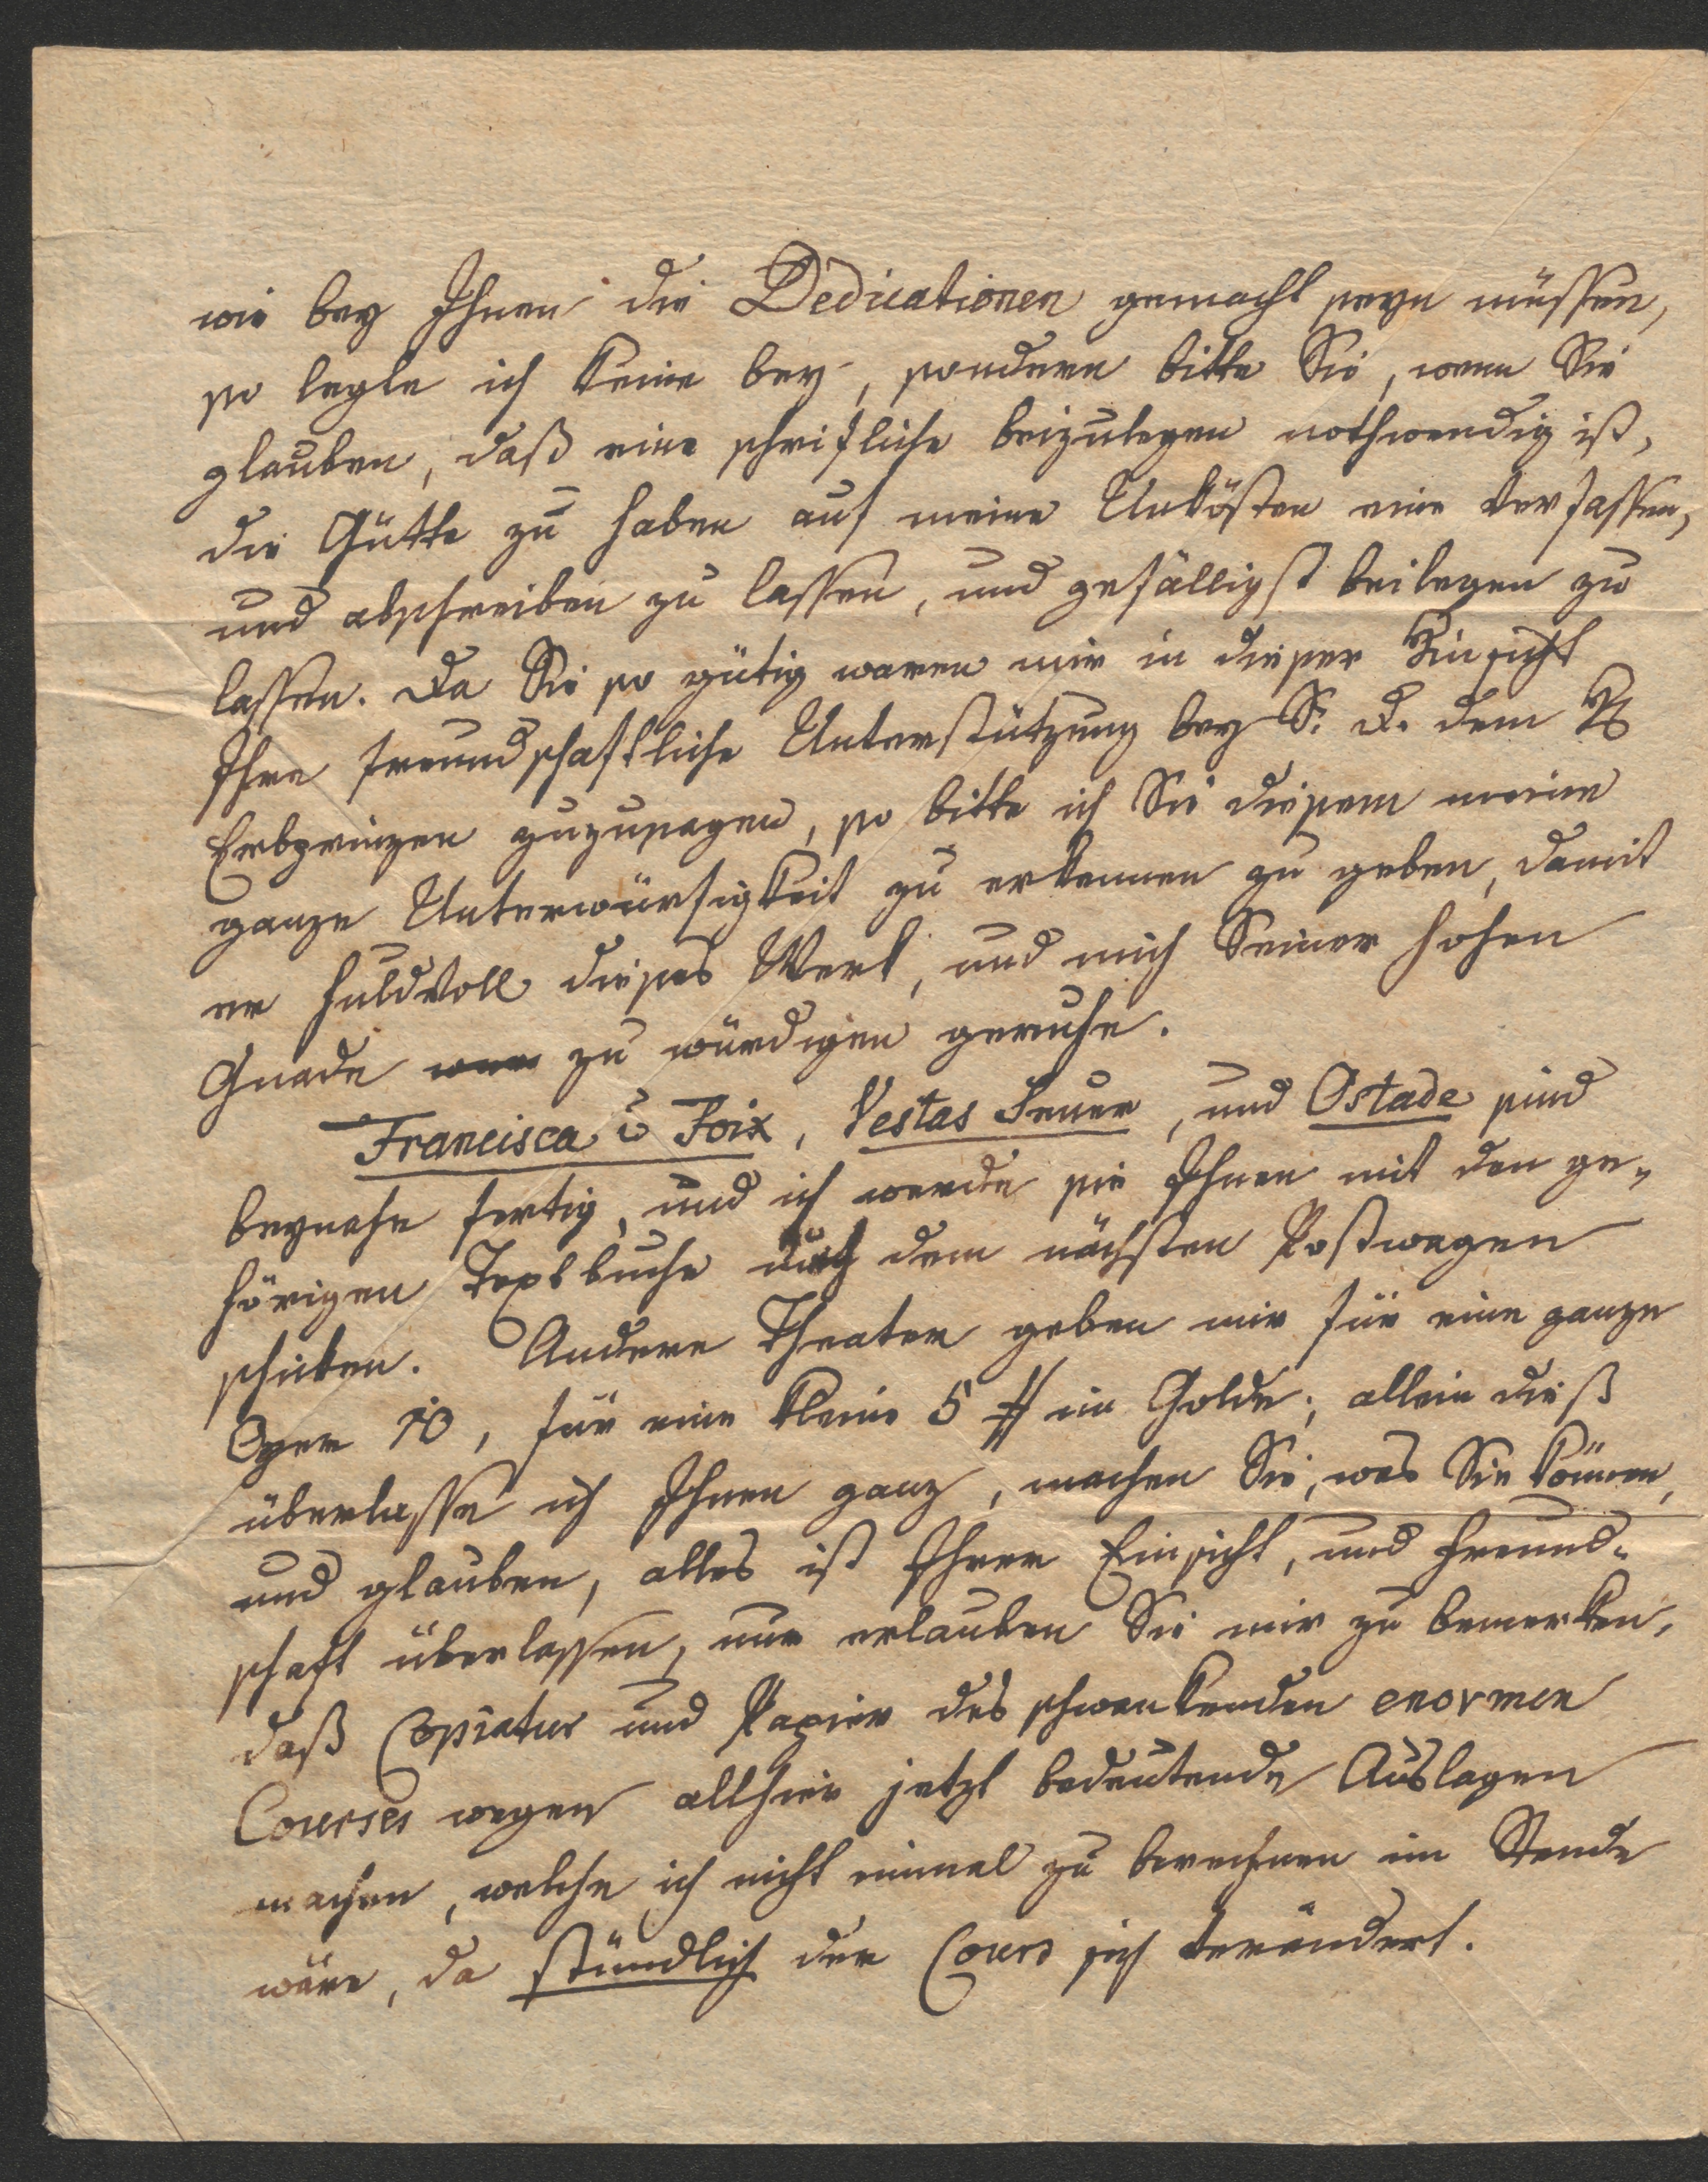 wie bey Ihnen die Dedicationen gemacht seyn müssen,
so legte ich keine bey, sondern bitte Sie, wenn Sie
glauben, daß eine schriftliche beizulegen nothwendig ist,
die Gütte zu haben auf meine Unkösten eine verfassen,
und abschreiben zu lassen, und gefälligst beilegen zu
lassen. Da Sie so gütig waren mir in dieser Hinsicht
Ihre freundschaftliche Unterstützung bey Sr. D. dem H
Erbprinzen zuzusagen, so bitte ich Sie diesem meine
ganze Unterwürfigkeit zu erkennen zu geben, damit
er huldvoll dieses Werk, und mich Seiner hohen
Gnade zu würdigen geruhe.
Francisca v Foix, Vestas Feuer, und Ostade sind
beynahe fertig, und ich werde sie Ihnen mit den ge-
hörigen Textbuche durch dem nächsten Postwagen
schicken. Andere Theater geben mir für eine ganze
Oper 10, für eine kleine 5 # in Golde; allein dieß
überlasse ich Ihnen ganz, machen Sie, was Sie können,
und glauben, alles ist Ihrer Einsicht, und Freund-
schaft überlassen, nur erlauben Sie mir zu bemerken,
daß Copiatur und Papier des schwankenden enormen
Courses wegen allhier jetzt bedeutende Auslagen
machen, welche ich nicht einmal zu berechnen im Stande
wäre, da stündlich der Cours sich verändert.